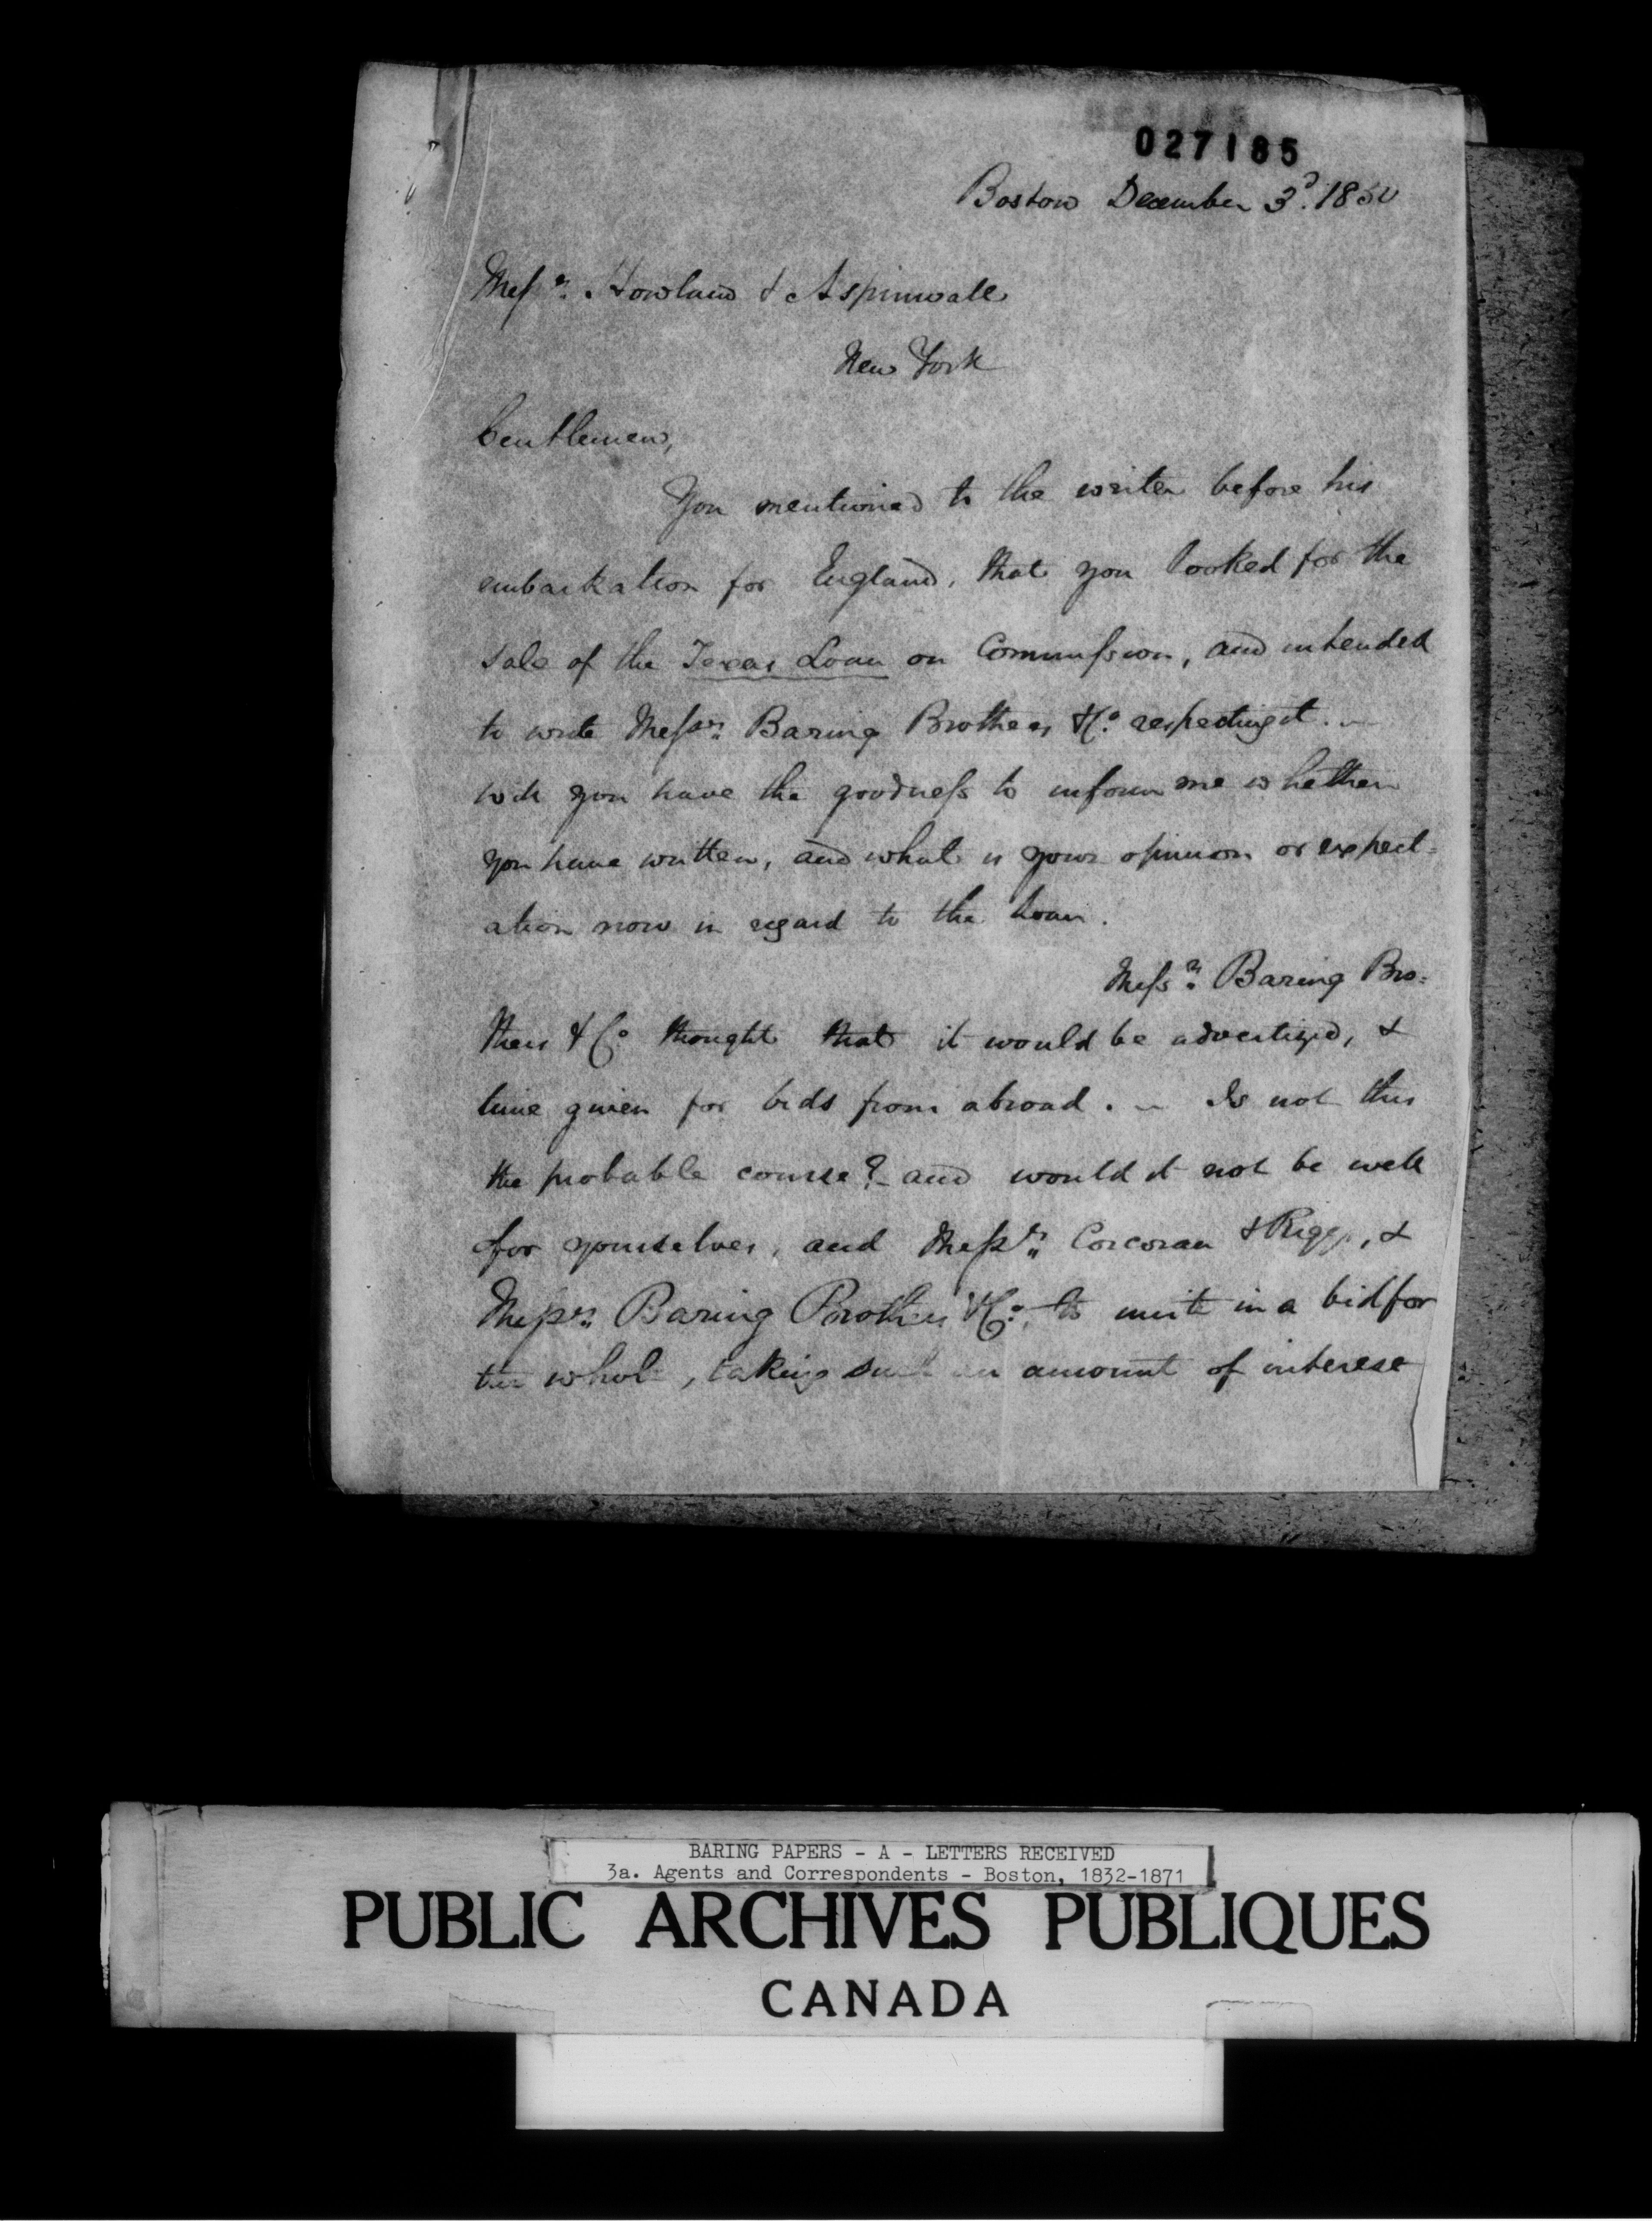 027185
Boston December 3d. 1850
Messrs. Howland & Aspinwall
New York
Gentlemen,
You mentioned to the writer before his
embarkation for England, that you looked for the
sale of the Texas Loan on Commission, and intended
to write Messrs. Baring Brothers & Co. respecting it. –
Will you have the goodness to inform me whether
you have written, and what is your opinion or expect-
ation now in regard to the loan.
Messrs. Baring Bro-
thers & Co. thought that it would be advertized, &
time given for bids from abroad. – Is not this
the probable course? – and would it not be well
for yourselves, and Messrs. Corcoran & Riggs, &
Messrs. Baring Brothers & Co., to unite in a bid for
the whole, taking such an amount of interest
BARING PAPERS - A - LETTERS RECEIVED
3a. Agents and Correspondents - Boston, 1832-1871
PUBLIC ARCHIVES PUBLIQUES
CANADA